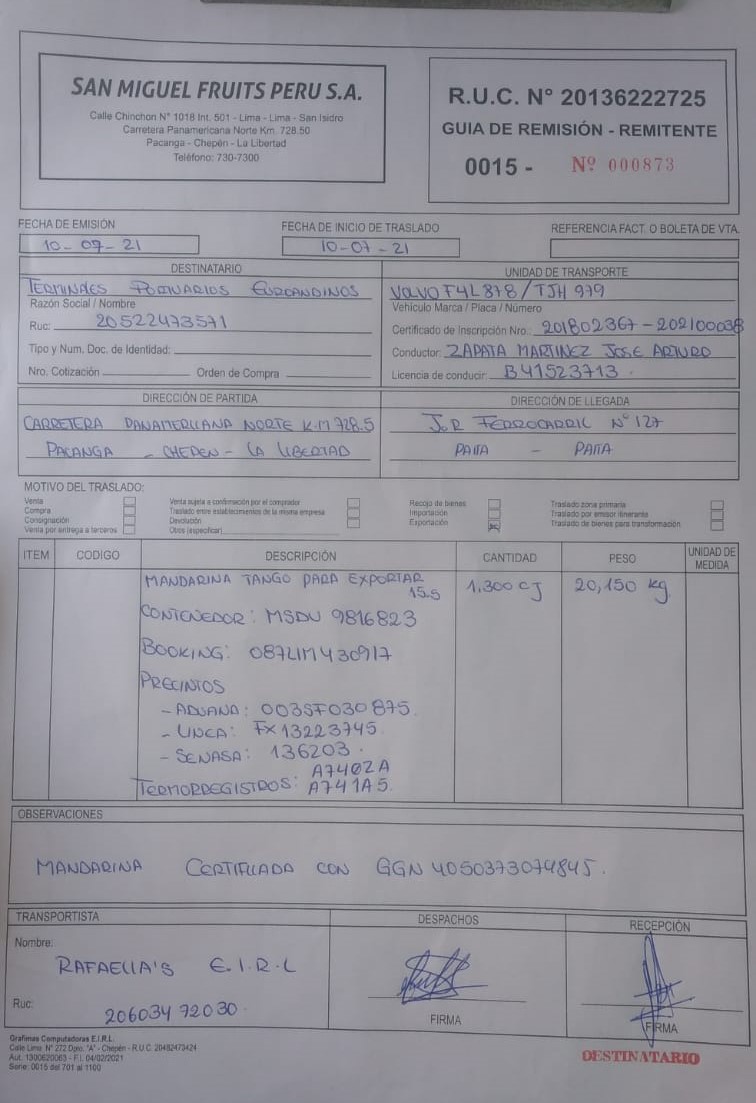 SAN MIGUEL FRUITS PERU S.A.
Calle Chinchon N° 1018 Int. 501 - Lima - Lima - San Isidro
Carretera Panamericana Norte Km. 728.50
Pacanga - Chepén - La Libertad
Teléfono: 730-7300
R.U.C. N° 20136222725
GUIA DE REMISIÓN - REMITENTE
0015 - Nº 000873
FECHA DE EMISIÓN
10-07-21
FECHA DE INICIO DE TRASLADO
10-07-21
REFERENCIA FACT. O BOLETA DE VTA.
DESTINATARIO
TERMINALES PORTUARIOS EUROANDINOS
Razón Social / Nombre
Ruc: 20522473571
Tipo y Num. Doc. de Identidad:
Nro. Cotización Orden de Compra
UNIDAD DE TRANSPORTE
VOLVO F4L878/TJH 979
Vehículo Marca / Placa / Número
Certificado de Inscripción Nro.: 201802367-202100038
Conductor: ZAPATA MARTINEZ JOSE ARTURO
Licencia de conducir: B41523713.
DIRECCIÓN DE PARTIDA
CARRETERA PANAMERICANA NORTE K.M 728.5
PACANGA - CHEPEN - LA LIBERTAD
DIRECCIÓN DE LLEGADA
JR FERROCARRIL N° 127
PAITA - PAITA
MOTIVO DEL TRASLADO:
Venta
Compra
Consignación
Venta por entrega a terceros
Venta sujeta a confirmación por el comprador
Traslado entre establecimientos de la misma empresa
Devolución
Otros (especificar)
Recojo de bienes
Importación
Exportación
Traslado zona primaria
Traslado por emisor itinerante
Traslado de bienes para transformación
ITEM CODIGO DESCRIPCIÓN CANTIDAD PESO UNIDAD DE MEDIDA
MANDARINA TANGO PARA EXPORTAR 1,300 CJ 20,150 kg.
15.5
CONTENEDOR: MSDU 9816823
BOOKING: 087LIM430917
PRECINTOS
- ADUANA: 003SF030875
- LINEA: FX13223745
- SENASA: 136203.
A740ZA
TERMORREGISTROS: A741A5.
OBSERVACIONES
MANDARINA CERTIFICADA CON GGN 4050373074845.
TRANSPORTISTA
Nombre:
RAFAELLA'S E.I.R.L
Ruc: 20603472030
DESPACHOS
FIRMA
RECEPCIÓN
FIRMA
Grafimas Computadoras E.I.R.L.
Calle Lima N° 272 Dpto. "A" - Chepén - R.U.C. 20482473424
Aut. 1300620063 - F.I. 04/02/2021
Serie: 0015 del 701 al 1100
DESTINATARIO